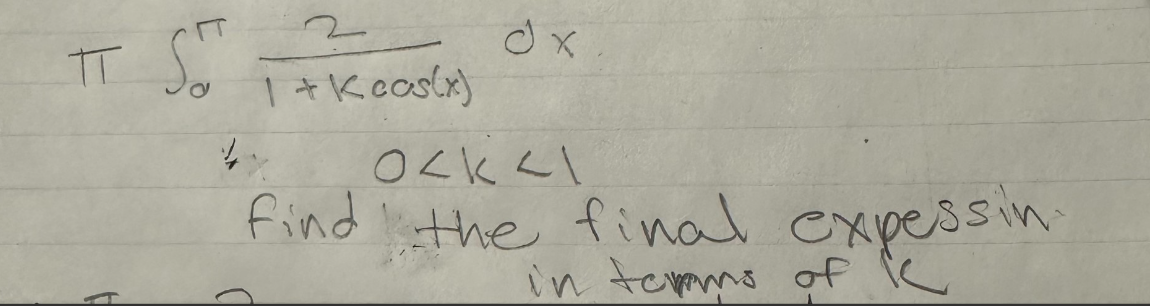 π ∫₀^π 2/(1 + k cos(x)) dx
0<k<1
find the final expessin
in terms of k